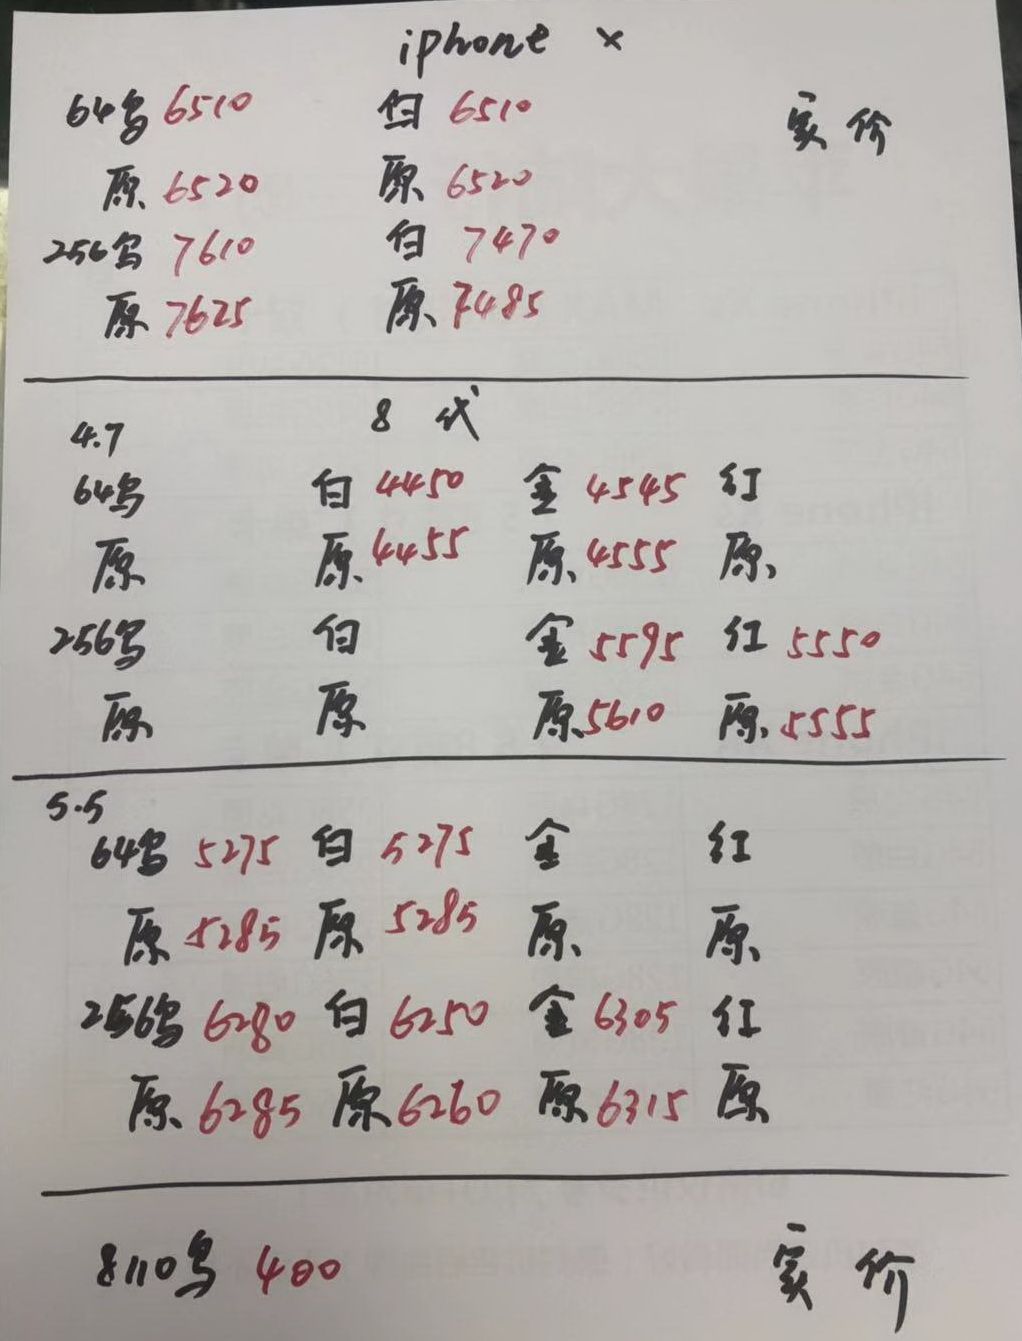 iphone x
64乌 6510 白 6510 实价
原 6520 原 6520
256乌 7610 白 7470
原 7625 原 7485
4.7 8代
64乌 白 4450 金 4545 红
原 原 4455 原 4555 原
256乌 白 金 5595 红 5550
原 原 原 5610 原 5555
5.5
64乌 5275 白 5275 金 红
原 5285 原 5285 原 原
256乌 6280 白 6250 金 6305 红
原 6285 原 6260 原 6315 原
8110乌 400 实价